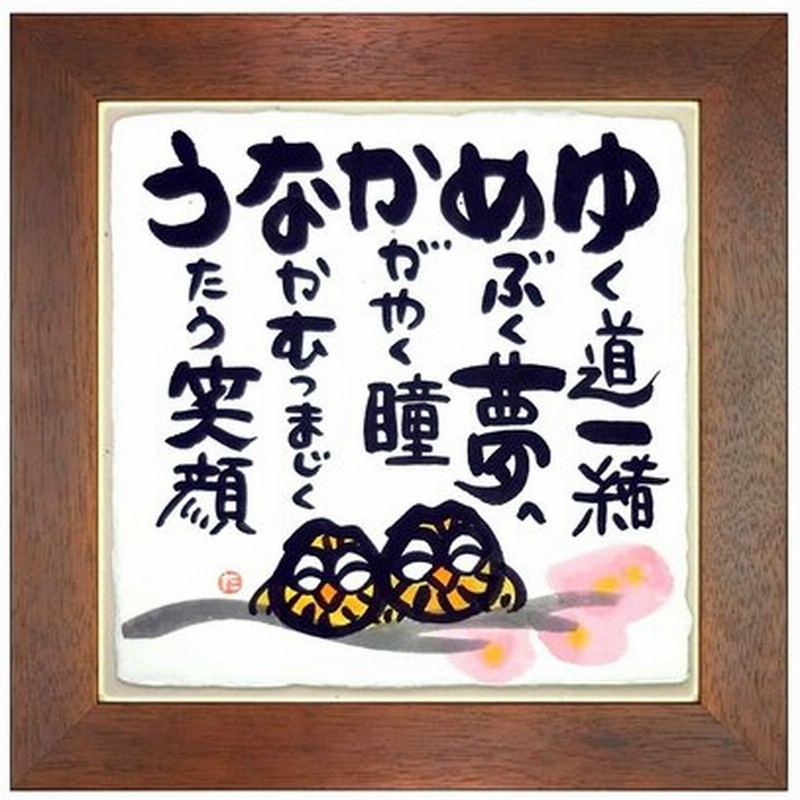 ゆく道一緒
めぶく夢へ
かがやく瞳
なかむつまじく
うたう笑顔
た